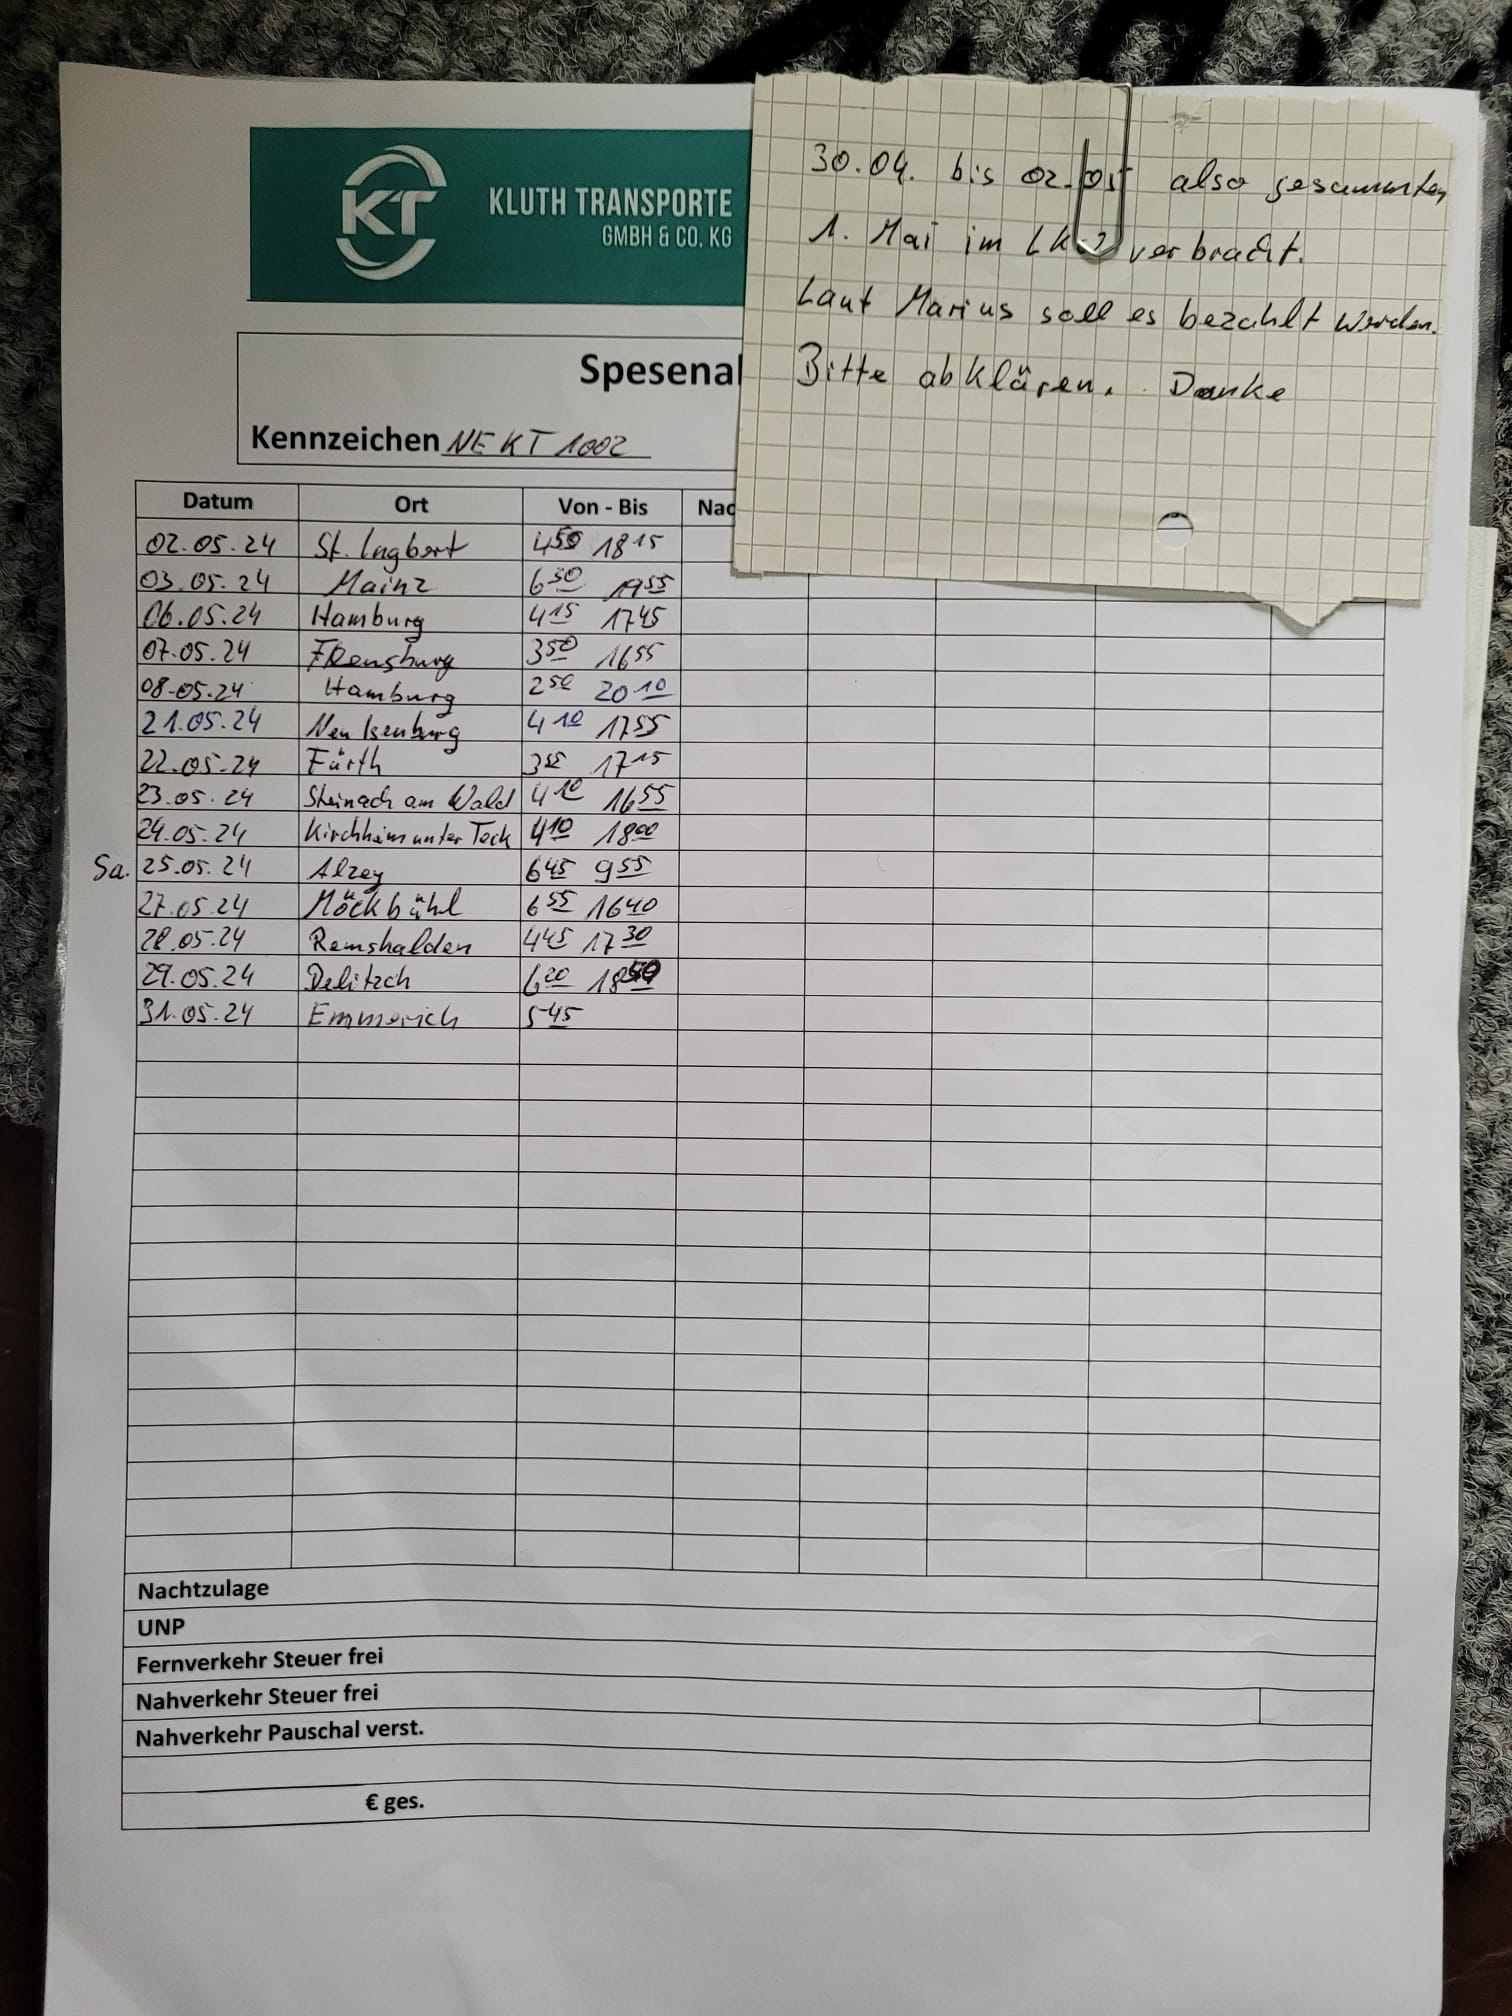 KT
KLUTH TRANSPORTE
GMBH & CO. KG
30.04. bis 02.05 also gesammten
1. Mai im LKW verbracht.
Laut Marius soll es bezahlt werden.
Bitte abklären. Danke
Spesenal
Kennzeichen NE KT 1002
Datum Ort Von - Bis Nac
02.05.24 St. Ingbert 4 50 18 15
03.05.24 Mainz 6 30 19 55
06.05.24 Hamburg 4 15 17 45
07.05.24 Flensburg 3 50 16 55
08.05.24 Hamburg 2 50 20 10
21.05.24 Neu Isenburg 4 10 17 55
22.05.24 Fürth 3 55 17 15
23.05.24 Steinach am Wald 4 10 16 55
24.05.24 Kirchheim unter Teck 4 10 18 00
Sa. 25.05.24 Alzey 6 45 9 55
27.05.24 Möckbühl 6 55 16 40
28.05.24 Remshalden 4 45 17 30
29.05.24 Delitzch 6 20 18 50
31.05.24 Emmerich 5 45
Nachtzulage
UNP
Fernverkehr Steuer frei
Nahverkehr Steuer frei
Nahverkehr Pauschal verst.
€ ges.